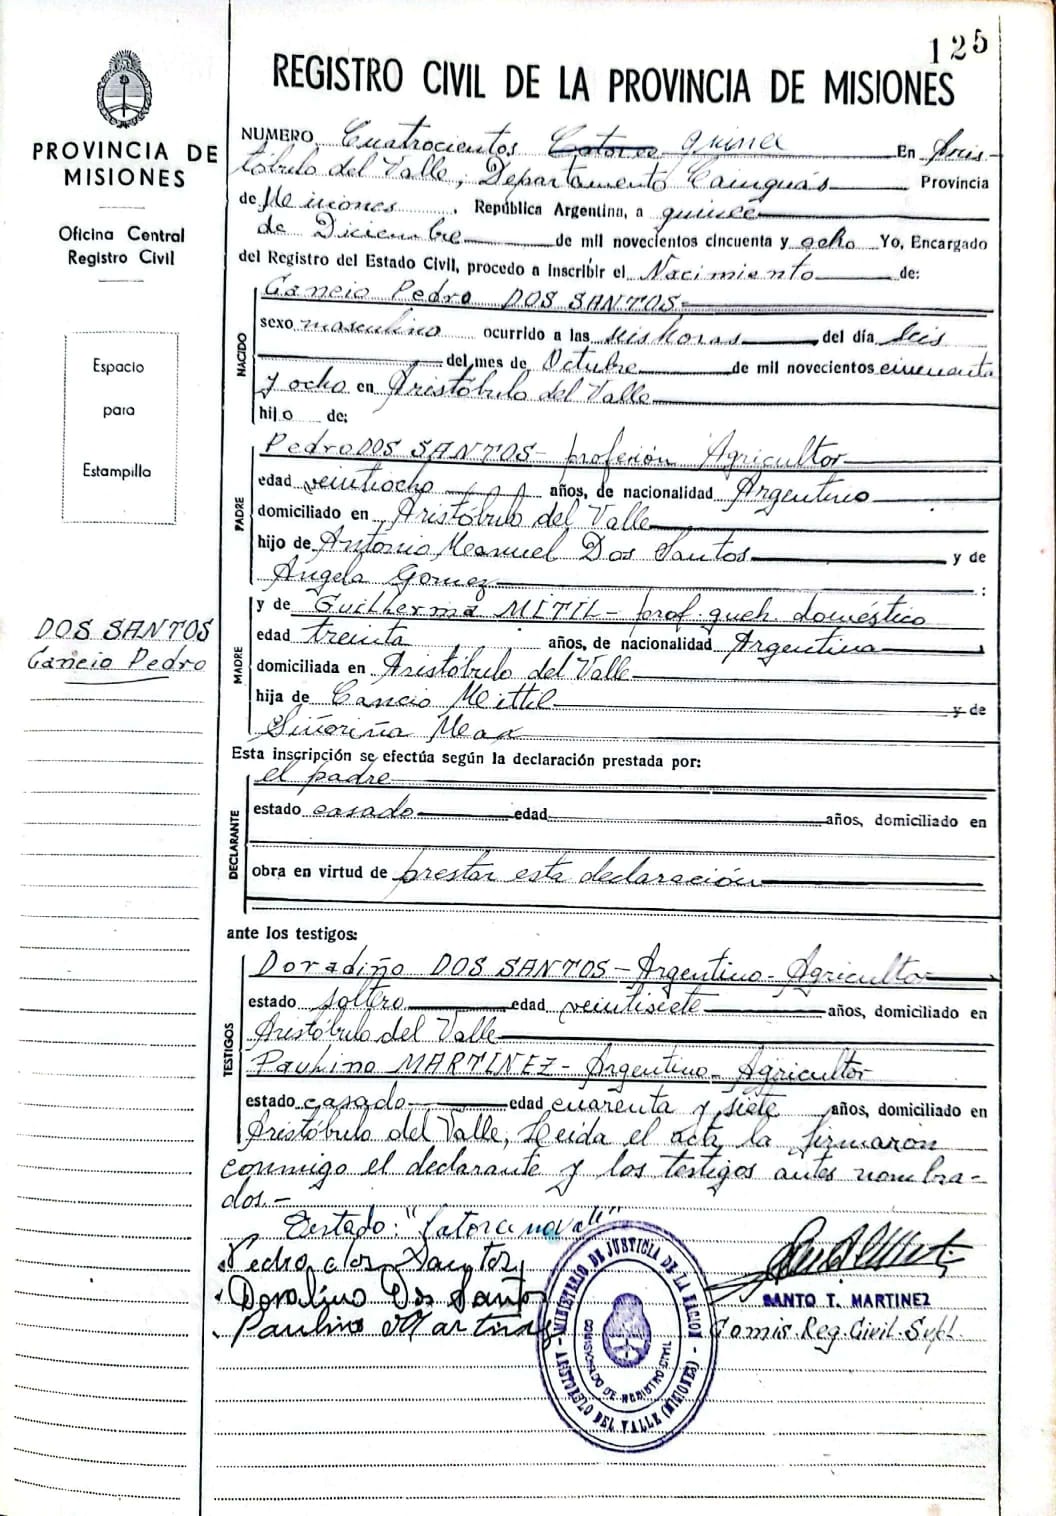 125
REGISTRO CIVIL DE LA PROVINCIA DE MISIONES
PROVINCIA DE
MISIONES
Oficina Central
Registro Civil
Espacio
para
Estampilla
DOS SANTOS
Cancio Pedro
NUMERO Cuatrocientos Catorce quince En Aris-
tóbulo del Valle, Departamento Cainguás Provincia
de Misiones, República Argentina, a quince
de Diciembre de mil novecientos cincuenta y ocho Yo, Encargado
del Registro del Estado Civil, procedo a inscribir el Nacimiento de:
NACIDO
Cancio Pedro DOS SANTOS
sexo masculino ocurrido a las seis horas del día seis
del mes de Octubre de mil novecientos cincuenta
y ocho en Aristóbulo del Valle
hijo de:
PADRE
Pedro DOS SANTOS - profesión Agricultor
edad veintiocho años, de nacionalidad Argentino
domiciliado en Aristóbulo del Valle
hijo de Antonio Manuel Dos Santos y de
Angela Gomez :
MADRE
y de Guilherma MITIL - prof. queh. doméstico
edad treinta años, de nacionalidad Argentina
domiciliada en Aristóbulo del Valle
hija de Cancio Mittil y de
Siñoriña Meax
Esta inscripción se efectúa según la declaración prestada por:
DECLARANTE
el padre
estado casado edad años, domiciliado en
obra en virtud de prestar esta declaración
ante los testigos:
TESTIGOS
Doradiño DOS SANTOS - Argentino - Agricultor
estado soltero edad veintisiete años, domiciliado en
Aristóbulo del Valle
Paulino MARTINEZ - Argentino - Agricultor
estado casado edad cuarenta y siete años, domiciliado en
Aristóbulo del Valle, Leida el acta la firmaron
conmigo el declarante y los testigos antes nombra-
dos.-
Testado: "Catorce no vale"
Pedro dos Santos
Doralino Dos Santos
Paulino Martinez
MINISTERIO DE JUSTICIA DE LA NACION
ARISTOBULO DEL VALLE (MISIONES)
DE REGISTRO CIVIL
SANTO T. MARTINEZ
Comis. Reg. Civil. Supl.